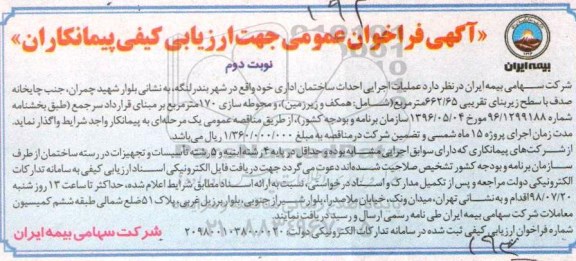 «آگهی فراخوان عمومی جهت ارزیابی کیفی پیمانکاران»
نوبت دوم
بیمه ایران
شرکت سهامی بیمه ایران در نظر دارد عملیات اجرایی احداث ساختمان اداری خود واقع در شهر بندرلنگه، به نشانی بلوار شهید چمران، جنب چاپخانه
صدف با سطح زیربنای تقریبی ۶۶۲/۶۵ مترمربع (شامل: همکف و زیرزمین)، و محوطه سازی ۱۷۰ متر مربع بر مبنای قرارداد سرجمع (طبق بخشنامه
شماره ۹۶/۱۲۹۹۱۸۸ مورخ ۱۳۹۶/۰۵/۰۴ سازمان برنامه و بودجه کشور)، از طریق مناقصه عمومی یک مرحله‌ای به پیمانکار واجد شرایط واگذار نماید.
مدت زمان اجرای پروژه ۱۵ ماه شمسی و تضمین شرکت در مناقصه به مبلغ ۱/۳۶۰/۰۰۰/۰۰۰ ریال می‌باشد.
از شرکت‌های پیمانکاری که دارای سوابق اجرایی مشابه بوده و حداقل در پایه ۴ رشته ابنیه و ۵ رشته تاسیسات و تجهیزات در رسته ساختمان از طرف
سازمان برنامه و بودجه کشور تشخیص صلاحیت شده‌اند دعوت می‌گردد جهت دریافت فایل الکترونیکی اسناد ارزیابی کیفی به سامانه تدارکات
الکترونیکی دولت مراجعه و پس از تکمیل مدارک و اسناد درخواستی، نسبت به ارائه اسناد مطابق شرایط اعلام شده، حداکثر تا ساعت ۱۳ روز شنبه
۹۸/۰۷/۲۰ اقدام و به نشانی تهران، میدان ونک، خیابان ملاصدرا، بلوار شیراز جنوبی، بلوار پرزیل غربی، پلاک ۵۱ ضلع شمالی طبقه ششم کمیسیون
معاملات شرکت سهامی بیمه ایران طی نامه رسمی ارسال و رسید دریافت نمایند.
شماره فراخوان ارزیابی کیفی ثبت شده در سامانه تدارکات الکترونیکی دولت ۲۰۹۸۰۰۱۰۳۸۰۰۰۰۲۰
شرکت سهامی بیمه ایران